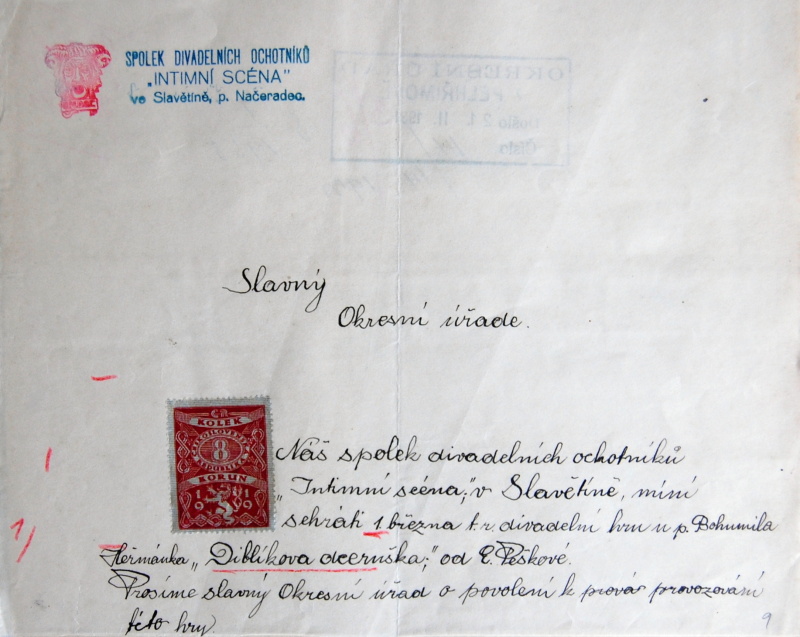 SPOLEK DIVADELNÍCH OCHOTNÍKŮ
„INTIMNÍ SCÉNA"
ve Slavětíně, p. Načeradec.
OKRESNÍ ÚŘAD
PELHŘIMOV
Došlo 21. II. 193
Číslo
Slavný
Okresní úřade.
KOLEK
8
KORUN
1919
Náš spolek divadelních ochotníků
„Intimní scéna," v Slavětíně, míní
sehráti 1 března t.r. divadelní hru u p. Bohumila
Heřmánka „Diblíkova dceruška," od E. Peškové.
Prosíme slavný Okresní úřad o povolení k provár provozování
této hry.
1)
9